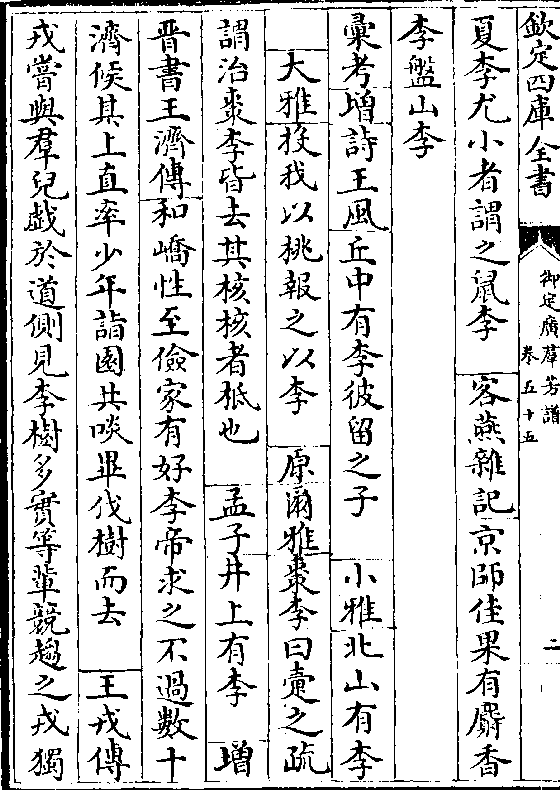 欽定四庫全書
御定廣羣芳譜
卷五十五
二
夏李尤小者謂之鼠李 客燕雜記京師佳果有麝香
李盤山李
彚考增詩王風丘中有李彼留之子 小雅北山有李
大雅投我以桃報之以李 原爾雅棗李曰疐之疏
謂治棗李皆去其核核者柢也 孟子井上有李 增
晋書王濟傳和嶠性至儉家有好李帝求之不過數十
濟候其上直率少年詣園共啖畢伐樹而去 王戎傳
戎嘗與羣兒戯於道側見李樹多實等輩競趨之戎獨